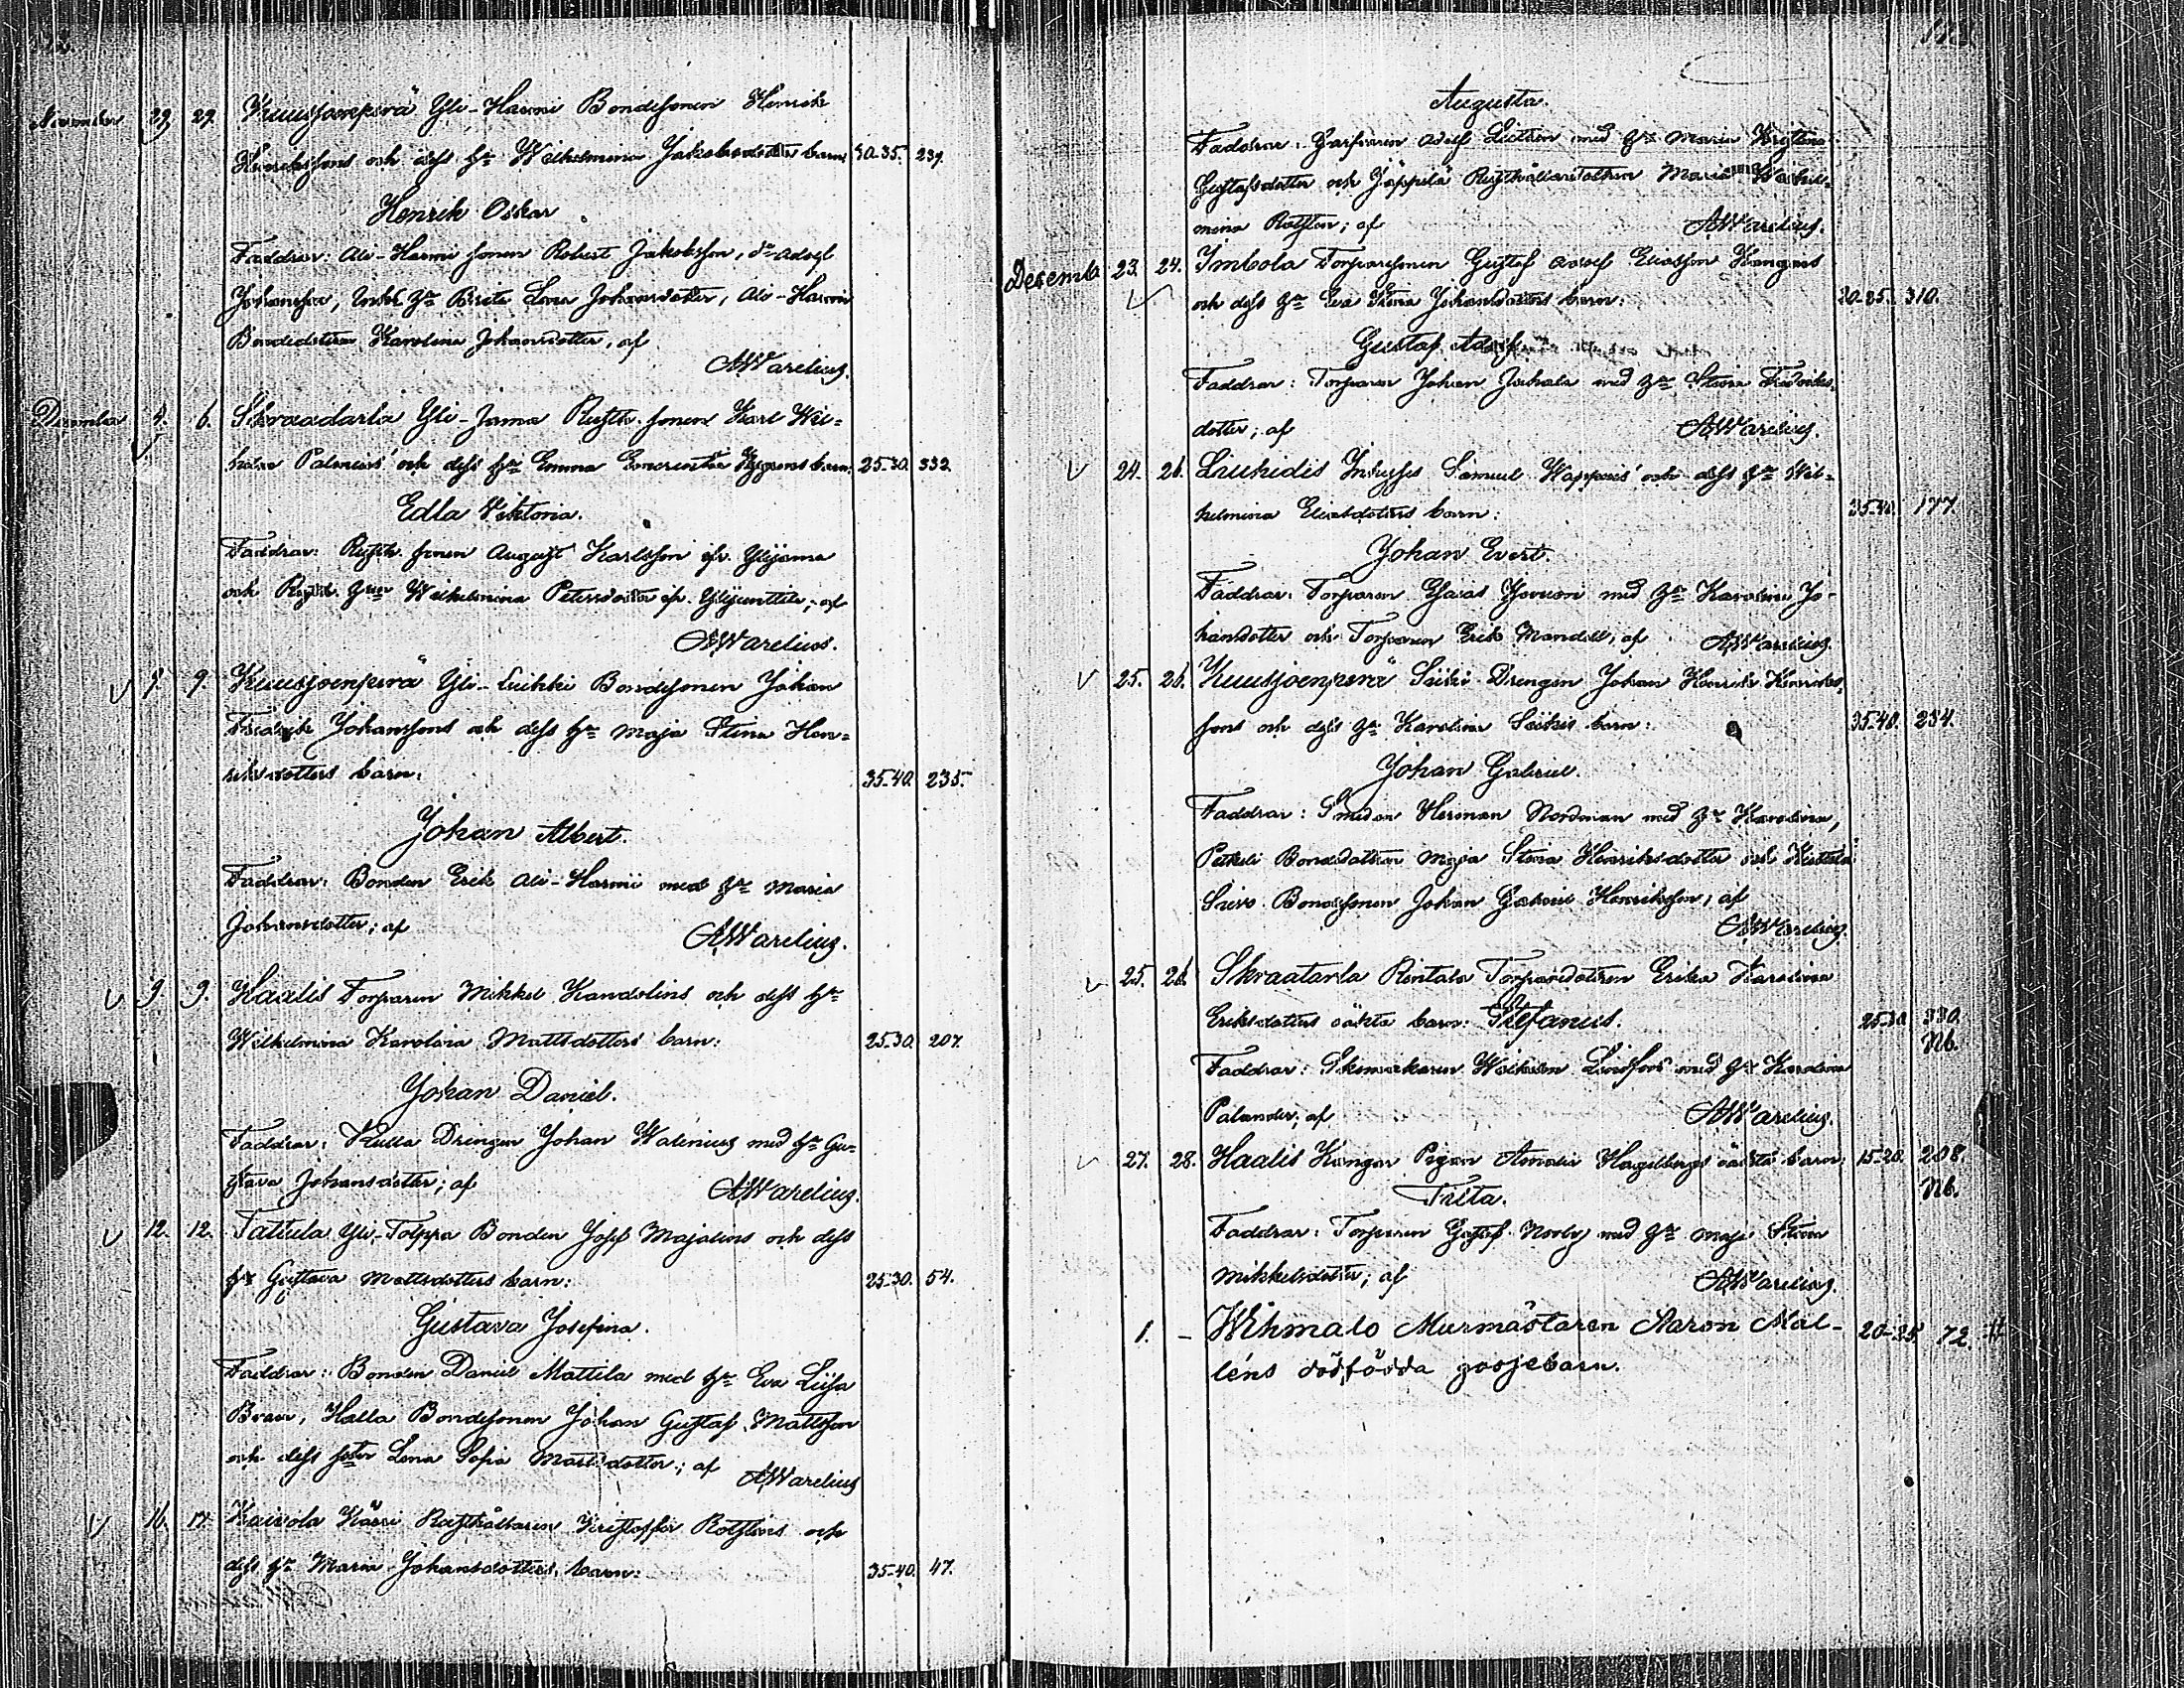 November 29. 29. Kuusjoenperä Yli-Harmi Bondesonen Henrik
Henrikssons och dess h:u Wilhelmina Jakobsdotters barn: 30-35. 239.
Henrik Oskar
Faddrar: Ali-Harmi sonen Robert Jakobsson, d:o Adolf
Johansson, h:u Brita Lena Johansdotter, Ali-Harmi
Bondedottren Karolina Johansdotter, af
AWarelius.
December 4. 6. Skraadarla Yli-Jama Rusth. sonen Karl Wil=
helm Palmens och dess h:u Emma Emerentia barn: 25-30. 332.
Edla Viktoria.
Faddrar: Rusth. sonen August Karlsson ifr. Ylijama
och Rusth. h:un Wilhelmina Petersdotter ifr. Ylijunttila, af
AWarelius.
9. 9. Kuusjoenperä Yli-Luikki Bondesonen Johan
Fredrik Johanssons och dess h:u Maja Stina Hen=
riksdotters barn: 35-40. 235.
Johan Albert.
Faddrar: Bonden Erik Ali-Harmi med h:u Maria
Johansdotter; af AWarelius.
9. 9. Haalis Torparen Mikkel Kandolins och dess h:u
Wilhelmina Karolina Mattsdotters barn: 25-30. 207.
Johan Daniel.
Faddrar: Kulla Drengen Johan Walenius med h:u Gu=
stava Johansdotter; af AWarelius.
12. 12. Tattula Yli-Tolppa Bonden Josef Majalins och dess
h:u Gustava Mattsdotters barn: 25-30. 54.
Gustava Josefina.
Faddrar: Bonden Daniel Mattila med h:u Eva Lisa
Halla Bondesonen Johan Gustaf Mattsson
och dess syster Lena Sofia Mattsdotter; af AWarelius
16. 17. Kaivola Kärri Rusthållaren Kristoffer Rothléns och
dess h:u Maria Johansdotters barn: 35-40. 47.
Augusta.
Faddrar: Garfvaren Adolf med h:u Maria Kristina
Gustafsdotter och Jäppilä Rusthållaredottren Maria Wilhel=
mina Rothlén; af AWarelius.
December 23. 24. Imbola Torparesonen Gustaf Adolf Eliasson Kangas
och dess h:u Eva Stina Johansdotters barn: 20-25. 310.
Gustaf Adolf.
Faddrar: Torparen Johan Jaakola med h:u Stina Fredriks=
dotter; af AWarelius.
24. 26. Liuhidis Inhyses Samuel och dess h:u Wil=
helmina Eliasdotters barn: 35-40. 177.
Johan Evert.
Faddrar: Torparen Esaias med h:u Karolina Jo-
hansdotter och Torparen Erik Mandell; af AWarelius.
25. 26. Kuusjoenperä Seiki Drengen Johan Henrik Henriks=
sons och dess h:u Karolina Seikis barn: 35-40. 234.
Johan Gabriel.
Faddrar: Smeden Herman Nordman med h:u Karolina,
Bondedottren Maja Stina Henriksdotter och
Bondesonen Johan Gabriel Henriksson; af
AWarelius.
25. 26. Skraatarla Rintala Torparedottren Erika Karolina
Eriksdotters oäkta barn: Stefanus. 25-30. 330.
Nb.
Faddrar: Skomakaren Wilhelm Lindfors med h:u Karolina
Palander; af AWarelius.
27. 28. Haalis Kangar Pigan Amalia Hagelbergs oäkta barn: 15-20. 208.
Nb.
Tilta.
Faddrar: Torparen Gustaf med h:u Maja Stina
Mikkelsdotter; af AWarelius.
1. - Wihmalo Murmästaren Aaron Mal- 20-25. 72.
léns dödfödda gossebarn.